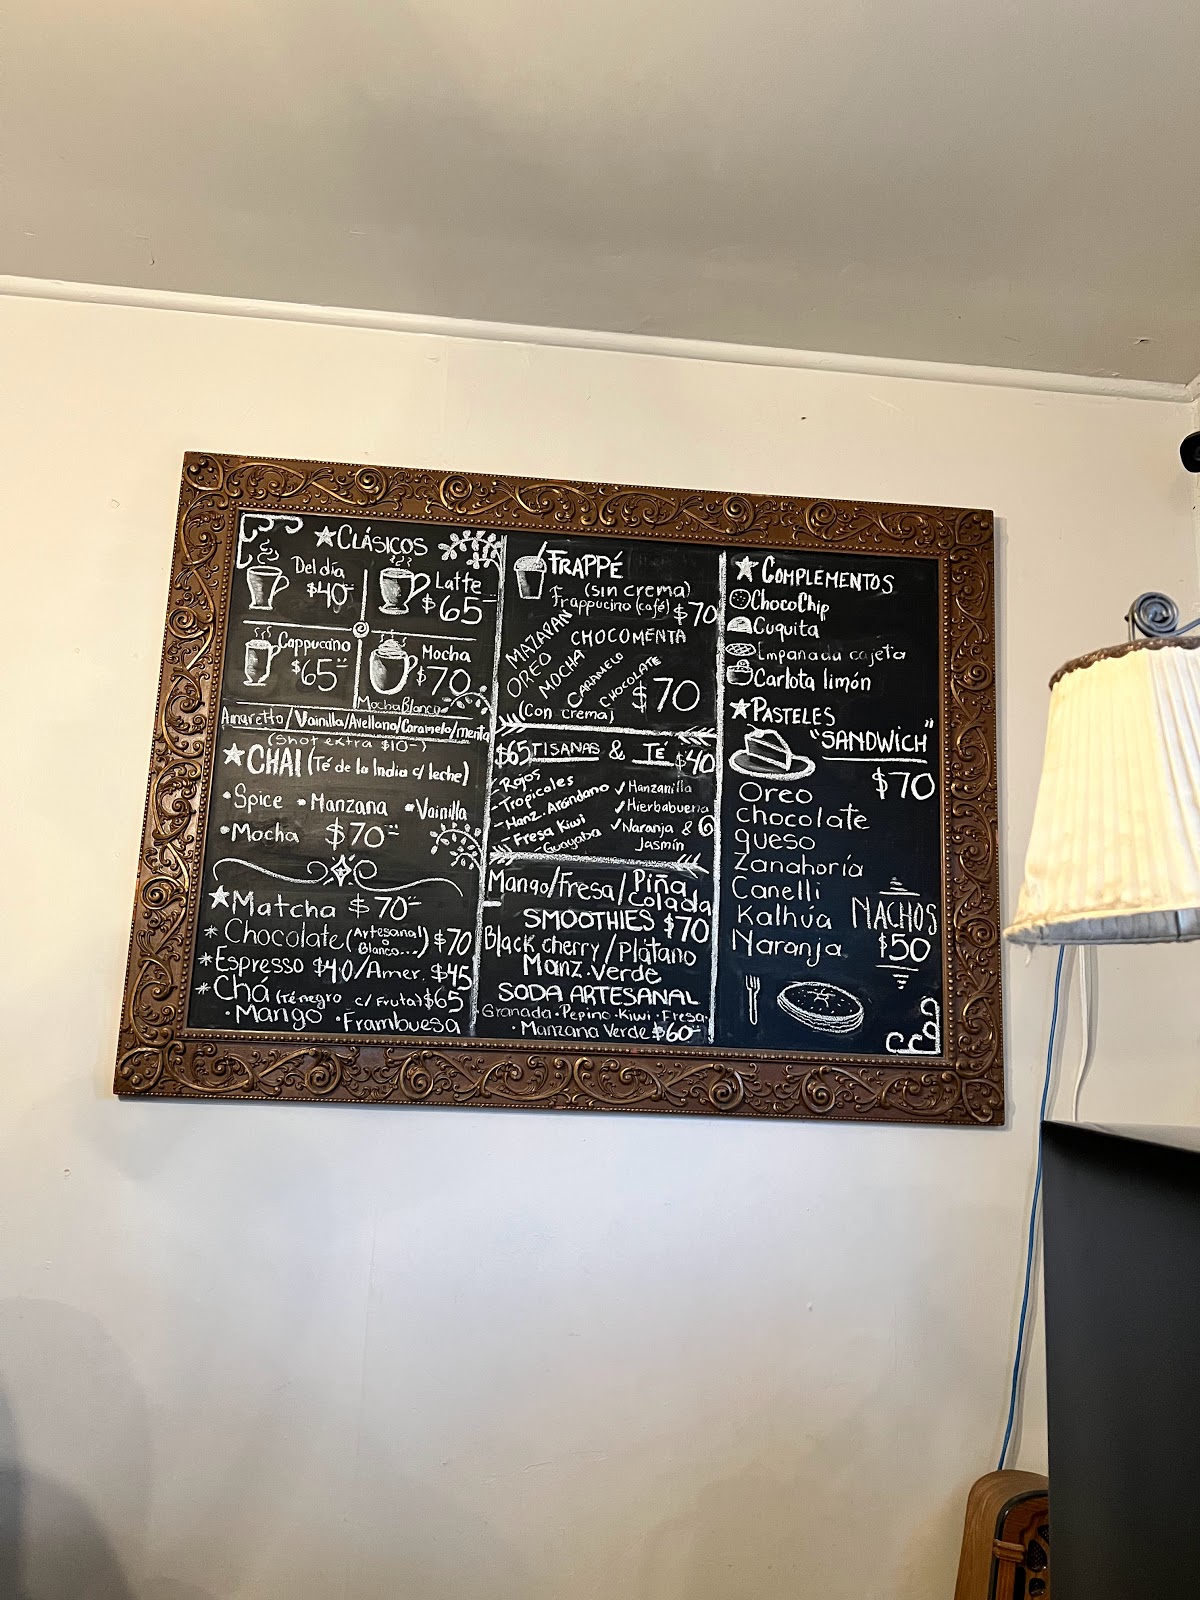 ★CLÁSICOS
Del día
$40
Latte
$65
Cappuccino
$65
Mocha
$70
Mocha Blanco
Amaretto/Vainilla/Avellano/Caramelo/menta
(Shot extra $10-)
★CHAI (Té de la India c/ leche)
•Spice •Manzana •Vainilla
•Mocha $70
★Matcha $70
*Chocolate (Artesanal o Blanco...) $70
*Espresso $40/Amer. $45
*Chá (Té negro c/ Fruta) $65
•Mango •Frambuesa
FRAPPÉ
(sin crema)
frappucino (café) $70
MAZAPAN
CHOCOMENTA
OREO
MOCHA
CARAMELO
CHOCOLATE
$70
(Con crema)
$65 TISANAS & TÉ $40
- Rojos
- Tropicales
- Manz. Arándano
Fresa Kiwi
- Guayaba
✓Manzanilla
✓Hierbabuena
✓Naranja &
Jasmín
Mango/Fresa/Piña Colada
SMOOTHIES $70
Black cherry/Plátano
Manz. verde
SODA ARTESANAL
Granada•Pepino•Kiwi•Fresa•
•Manzana Verde $60
★COMPLEMENTOS
ChocoChip
Cuquita
Empanada cajeta
Carlota limón
★PASTELES
"SANDWICH"
$70
Oreo
Chocolate
queso
Zanahoría
Canelli
Kalhúa
Naranja
NACHOS
$50